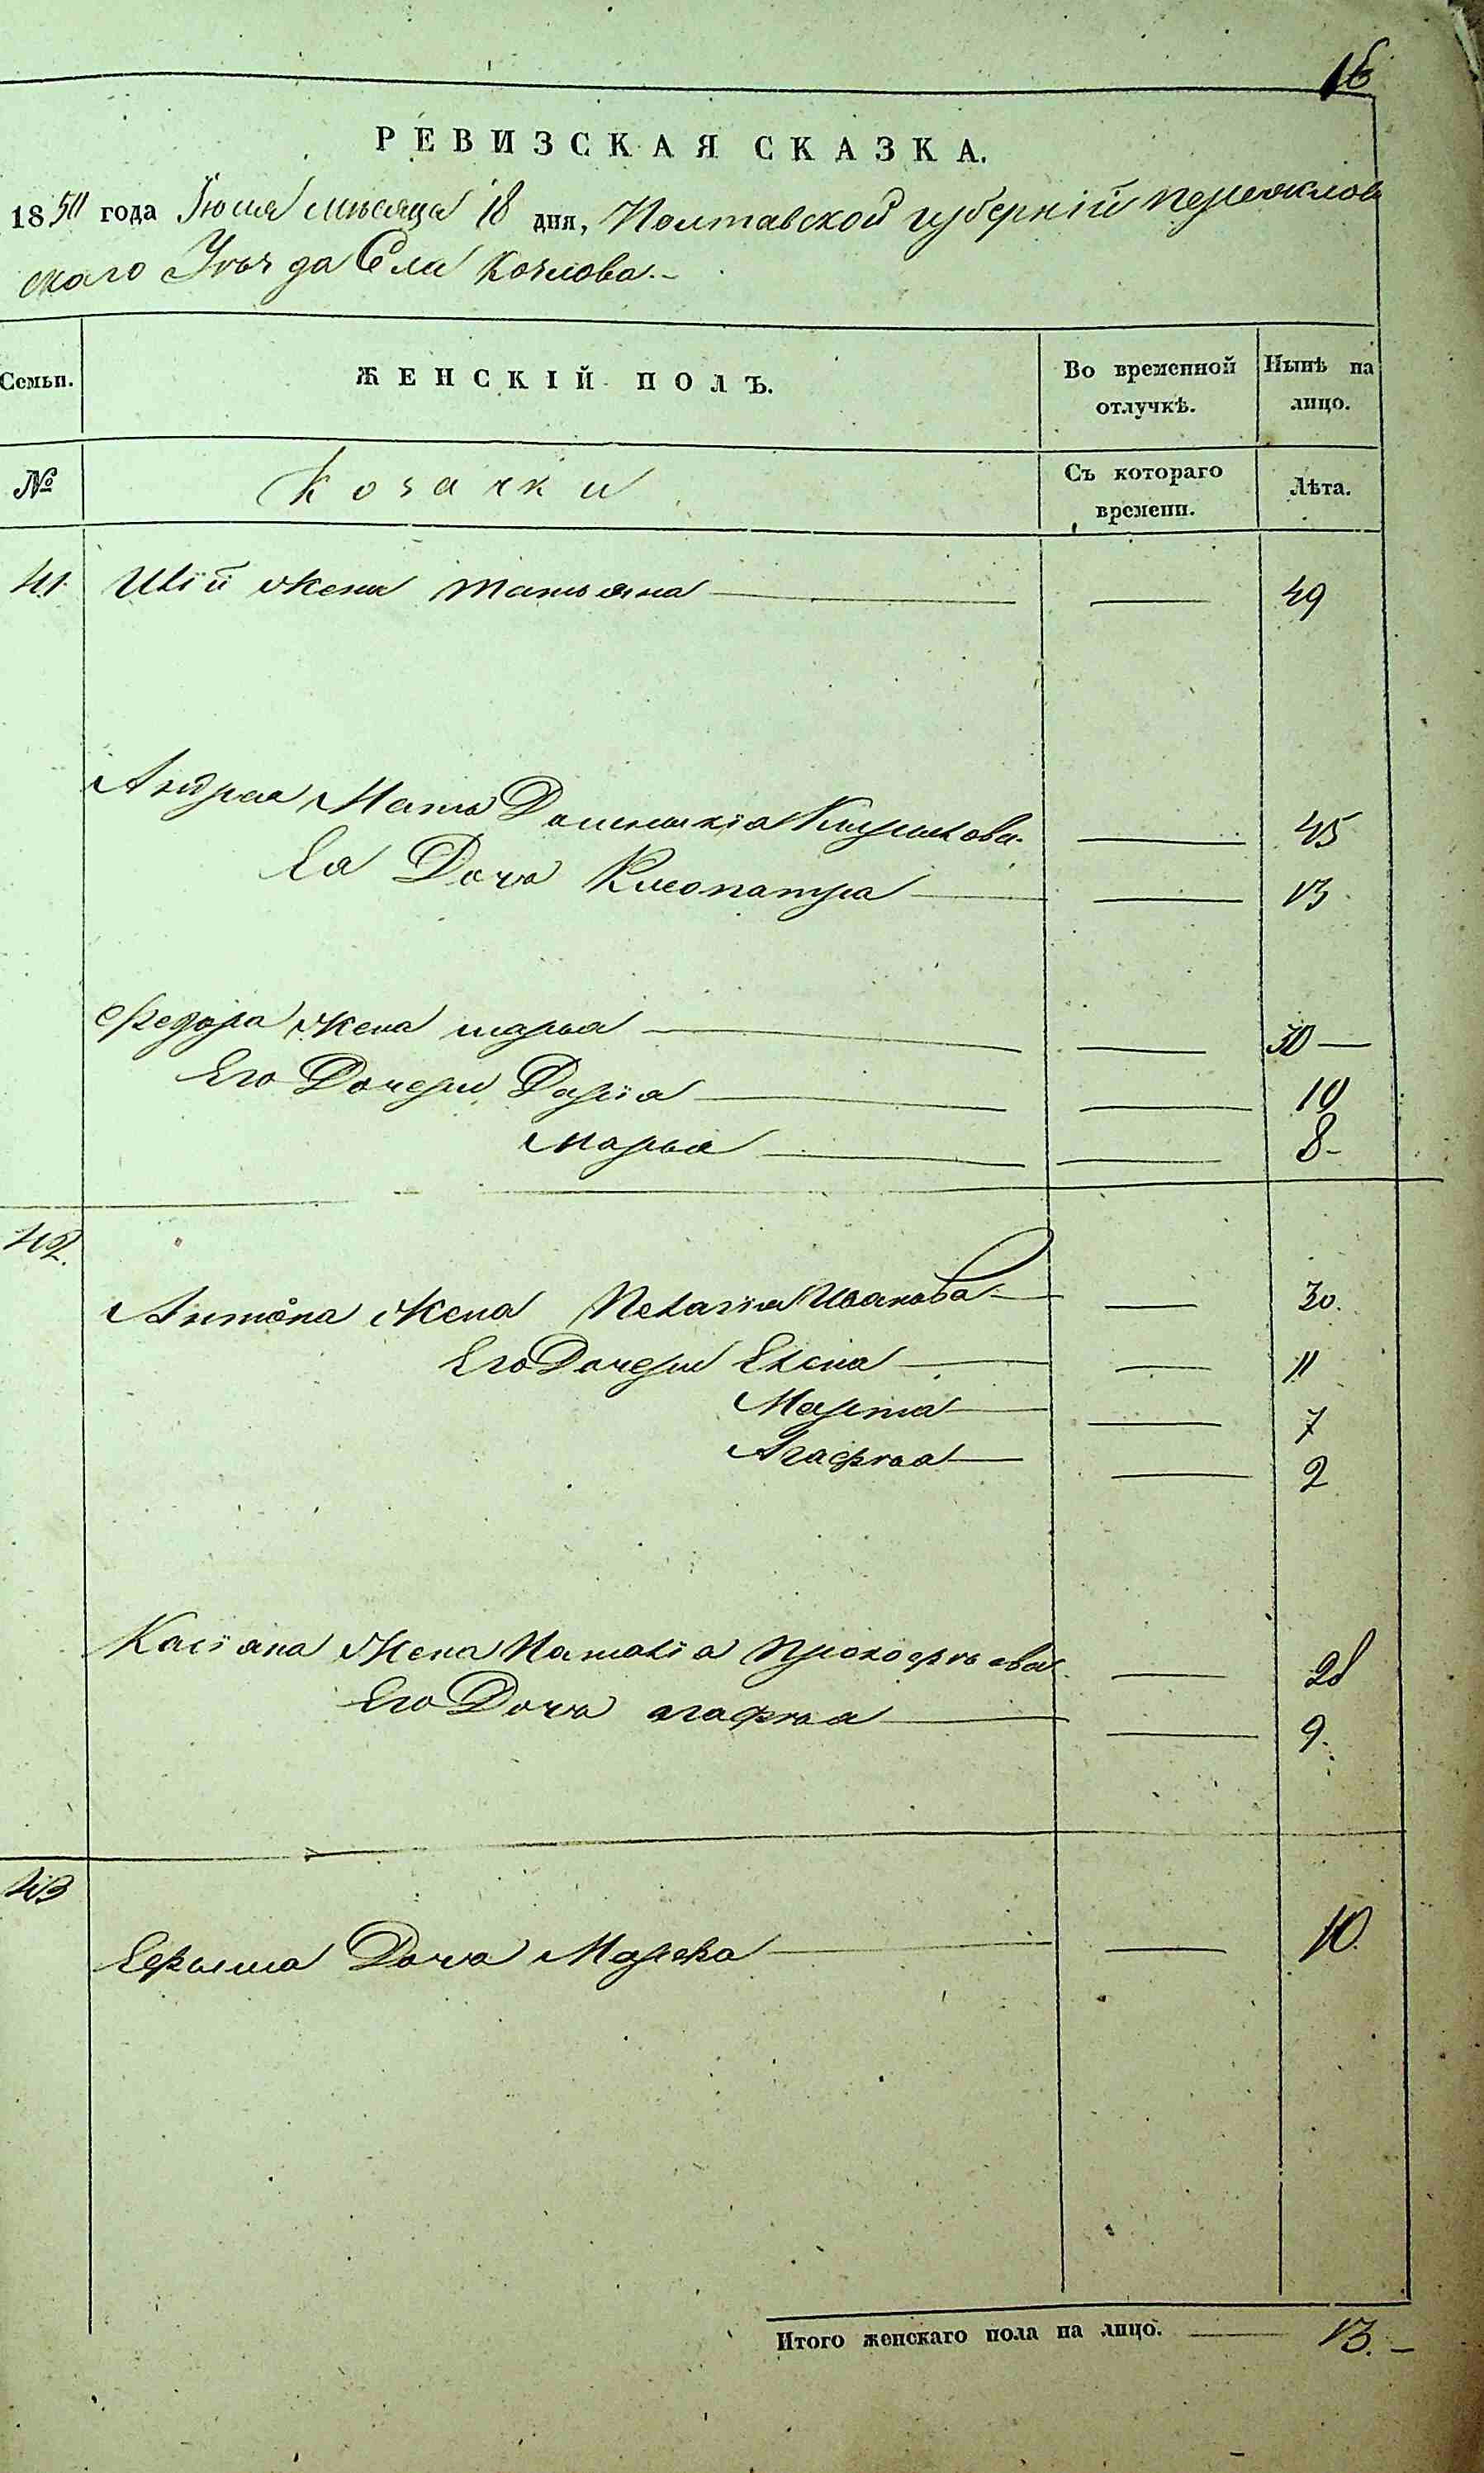 16
РЕВИЗСКАЯ СКАЗКА.
1850 года Іюля мѣсяца 18 дня, Полтавской губерніи Переяслов
скаго Уѣзда Села Козлова.
Семьи. ЖЕНСКІЙ ПОЛЪ. Во временной отлучкѣ. Нынѣ на лицо.
№ Козачки Съ котораго времени. Лѣта.
41. Илій жена Татьяна — — 49
Андрея Мать Домникія Кирилова — 45
Ея Дочь Клеопатра — — 13
Федора Жена марья — — 30 —
Его Дочери Дарія — — 10
Марья — — 8 —
42.
Антона Жена Пелагія Иванова — — 30.
Его Дочери Елена — — 11
Марта — — 7
Агафья — — 2
Касіяна Жена Наталія Прокофьева — 28
Его Дочь агафья — — 9.
43
Ефима Дочь Марфа — — 10.
Итого женскаго пола на лицо. — 13. —